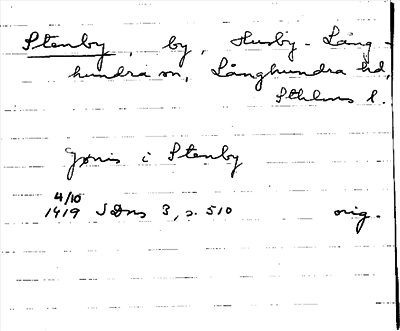 Stenby, by, Husby-Lång-
hundra sn, Långhundra hd,
Sthlms l.
Jønis i Stenby
4/10
1419 SDns 3, s. 510 orig.